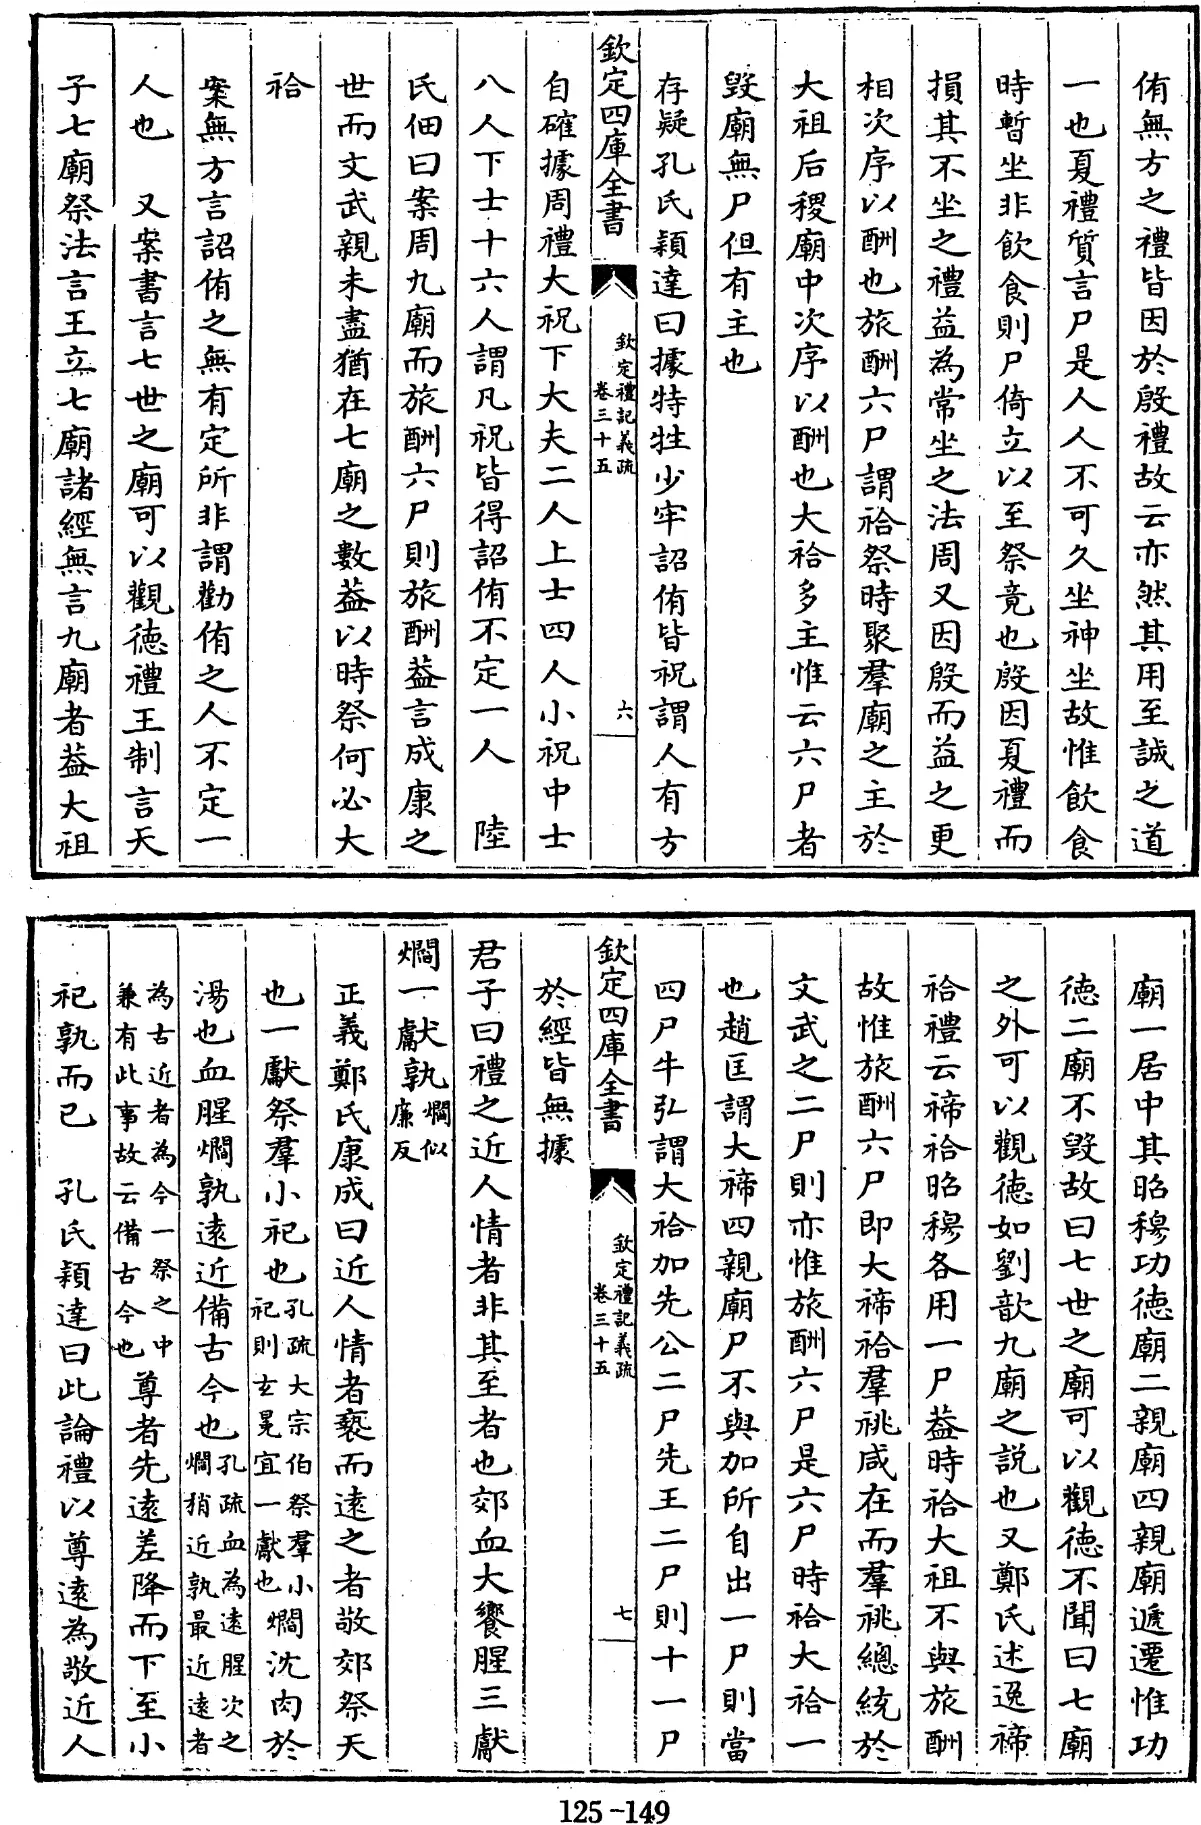 侑無方之禮皆因於殷禮故云亦然其用至誠之道
一也夏禮質言尸是人人不可久坐神坐故惟飲食
時暫坐非飲食則尸倚立以至祭竟也殷因夏禮而
損其不坐之禮益為常坐之法周又因殷而益之更
相次序以酬也旅酬六尸謂祫祭時聚羣廟之主於
大祖后稷廟中次序以酬也大祫多主惟云六尸者
毀廟無尸但有主也
存疑孔氏穎達曰據特牲少牢詔侑皆祝謂人有方
欽定四庫全書 欽定禮記義疏 卷三十五 六
自確據周禮大祝下大夫二人上士四人小祝中士
八人下士十六人謂凡祝皆得詔侑不定一人 陸
氏佃曰案周九廟而旅酬六尸則旅酬葢言成康之
世而文武親未盡猶在七廟之數葢以時祭何必大
祫
案無方言詔侑之無有定所非謂勸侑之人不定一
人也 又案書言七世之廟可以觀德禮王制言天
子七廟祭法言王立七廟諸經無言九廟者葢大祖
廟一居中其昭穆功德廟二親廟四親廟遞遷惟功
德二廟不毀故曰七世之廟可以觀德不聞曰七廟
之外可以觀德如劉歆九廟之説也又鄭氏述逸禘
祫禮云禘祫昭穆各用一尸葢時祫大祖不與旅酬
故惟旅酬六尸即大禘祫羣祧咸在而羣祧總統於
文武之二尸則亦惟旅酬六尸是六尸時祫大祫一
也趙匡謂大禘四親廟尸不與加所自出一尸則當
四尸牛弘謂大祫加先公二尸先王二尸則十一尸
欽定四庫全書 欽定禮記義疏 卷三十五 七
於經皆無據
君子曰禮之近人情者非其至者也郊血大饗腥三獻
爓一獻孰爓似廉反
正義鄭氏康成曰近人情者䙝而遠之者敬郊祭天
也一獻祭羣小祀也孔疏大宗伯祭羣小祀則玄冕宜一獻也爓沈肉於
湯也血腥爓孰遠近備古今也孔疏血為遠腥次之爓稍近孰最近遠者
為古近者為今一祭之中兼有此事故云備古今也尊者先遠差降而下至小
祀孰而已 孔氏穎達曰此論禮以尊遠為敬近人
125-149